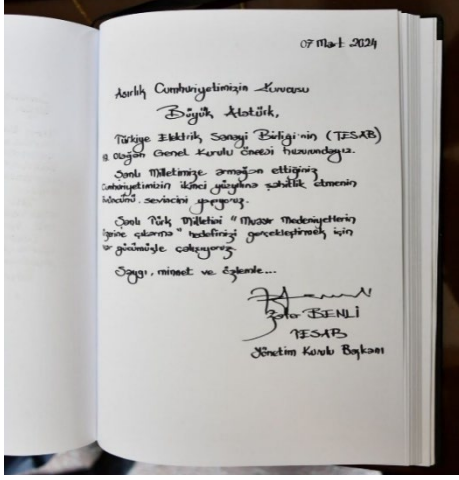 07 Mart 2024
Asırlık Cumhuriyetimizin Kurucusu
Büyük Atatürk,
Türkiye Elektrik Sanayi Birliği'nin (TESAB)
Olağan Genel Kurulu öncesi huzurundayız.
Şanlı Milletimize armağan ettiğiniz
Cumhuriyetimizin ikinci yüzyılına şahitlik etmenin
sevincini yaşıyoruz.
Şanlı Türk Milletini "Muasır Medeniyetlerin
çıkarma" hedefinizi gerçekleştirmek için
gücümüzle çalışıyoruz.
Saygı, minnet ve özlemle...
BENLİ
TESAB
Yönetim Kurulu Başkanı